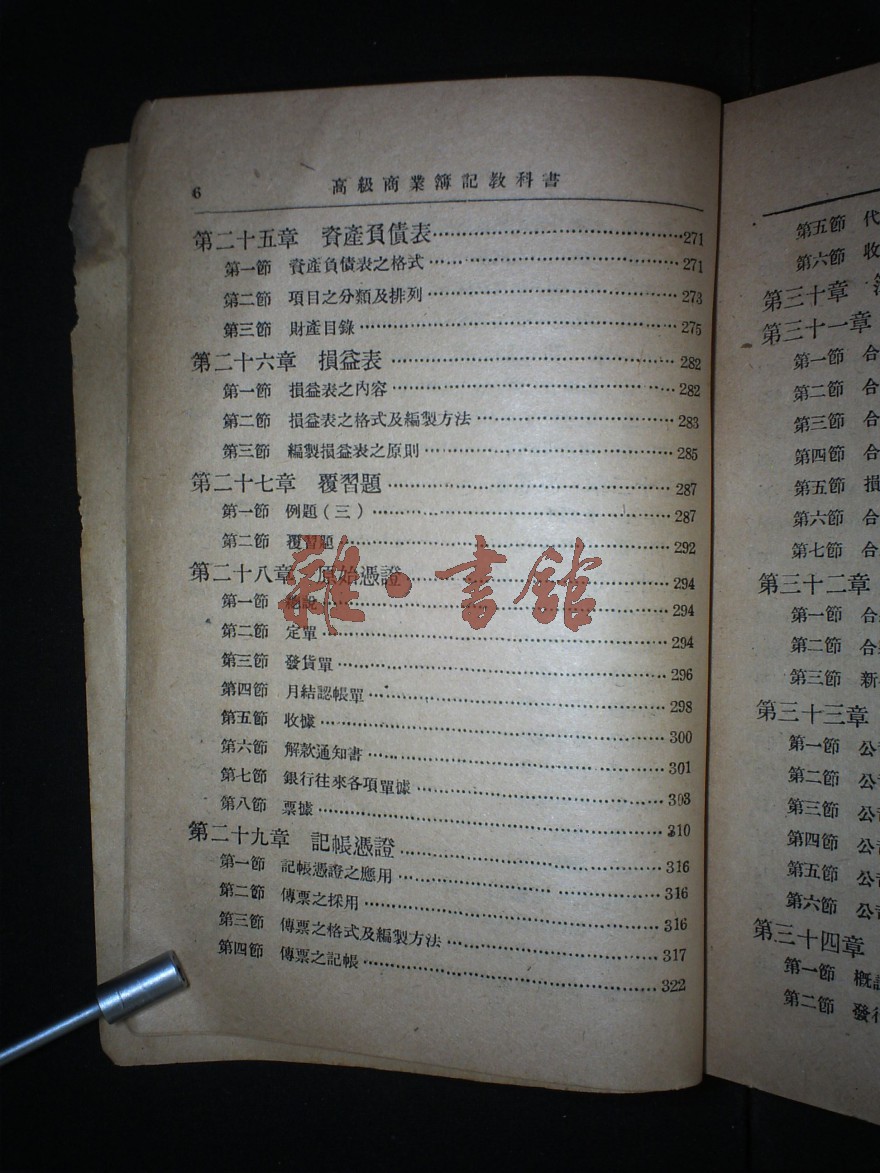 6 高級商業簿記教科書
第二十五章 資產負債表……271
第一節 資產負債表之格式……271
第二節 項目之分類及排列……273
第三節 財產目錄……275
第二十六章 損益表……282
第一節 損益表之內容……282
第二節 損益表之格式及編製方法……283
第三節 編製損益表之原則……285
第二十七章 覆習題……287
第一節 例題(三)……287
第二節 覆習題……292
第二十八章 原始憑證……294
第一節 總說……294
第二節 定單……294
第三節 發貨單……296
第四節 月結認帳單……298
第五節 收據……300
第六節 解款通知書……301
第七節 銀行往來各項單據……303
第八節 票據……310
第二十九章 記帳憑證……316
第一節 記帳憑證之應用……316
第二節 傳票之採用……316
第三節 傳票之格式及編製方法……317
第四節 傳票之記帳……322
雜·書館
第五節 代
第六節 收
第三十章
第三十一章
第一節 合
第二節 合
第三節 合
第四節 合
第五節 損
第六節 合
第七節 合
第三十二章
第一節 合
第二節 合
第三節 新
第三十三章
第一節 公
第二節 公
第三節 公
第四節 公
第五節 公
第六節 公
第三十四章
第一節 概
第二節 發